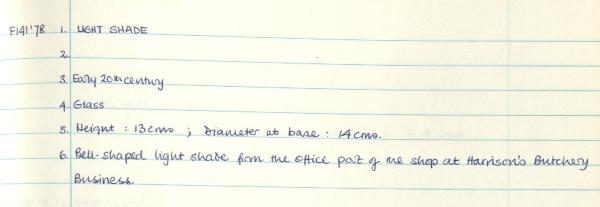 F141'78 1. LIGHT SHADE
2.
3. Early 20th century
4. Glass
5. Height : 13cms ; Diameter at base : 14cms.
6. Bell-shaped light shade from the office part of the shop at Harrison's Butchery
Business.